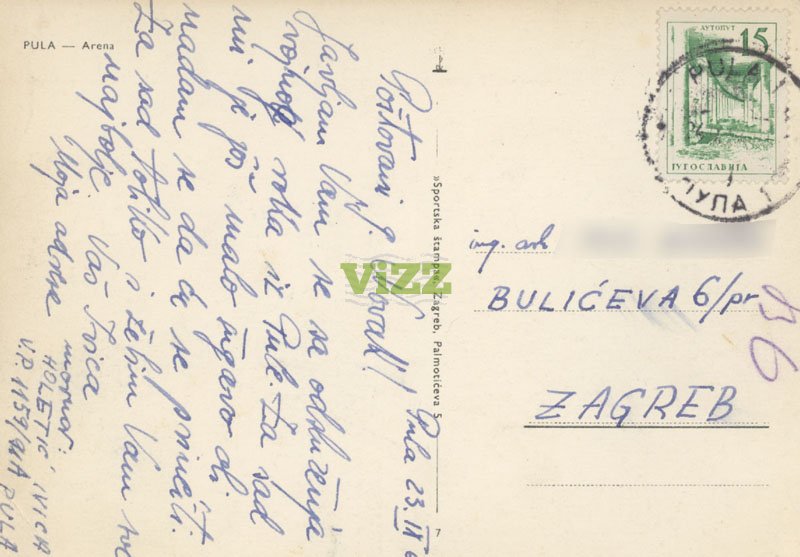 PULA — Arena
Pula 23. IX 6
Poštovani g. Novak!
Javljam Vam se sa odsluženja
vojnog roka iz Pule. Za sad
mi je još malo
nadam se da će se
Za sad toliko i želim Vam sve
najbolje Vaš Ivica
Moja adresa
mornar:
HOLETIĆ IVICA
V.P. 1159/ PULA
"Sportska štampa", Zagreb, Palmotićeva 5
7
АУТОПУТ
15
ЈУГОСЛАВИЈА
PULA 1
ПУЛА 1
ing. arh
BULIĆEVA 6/pr
ZAGREB
ViZZ